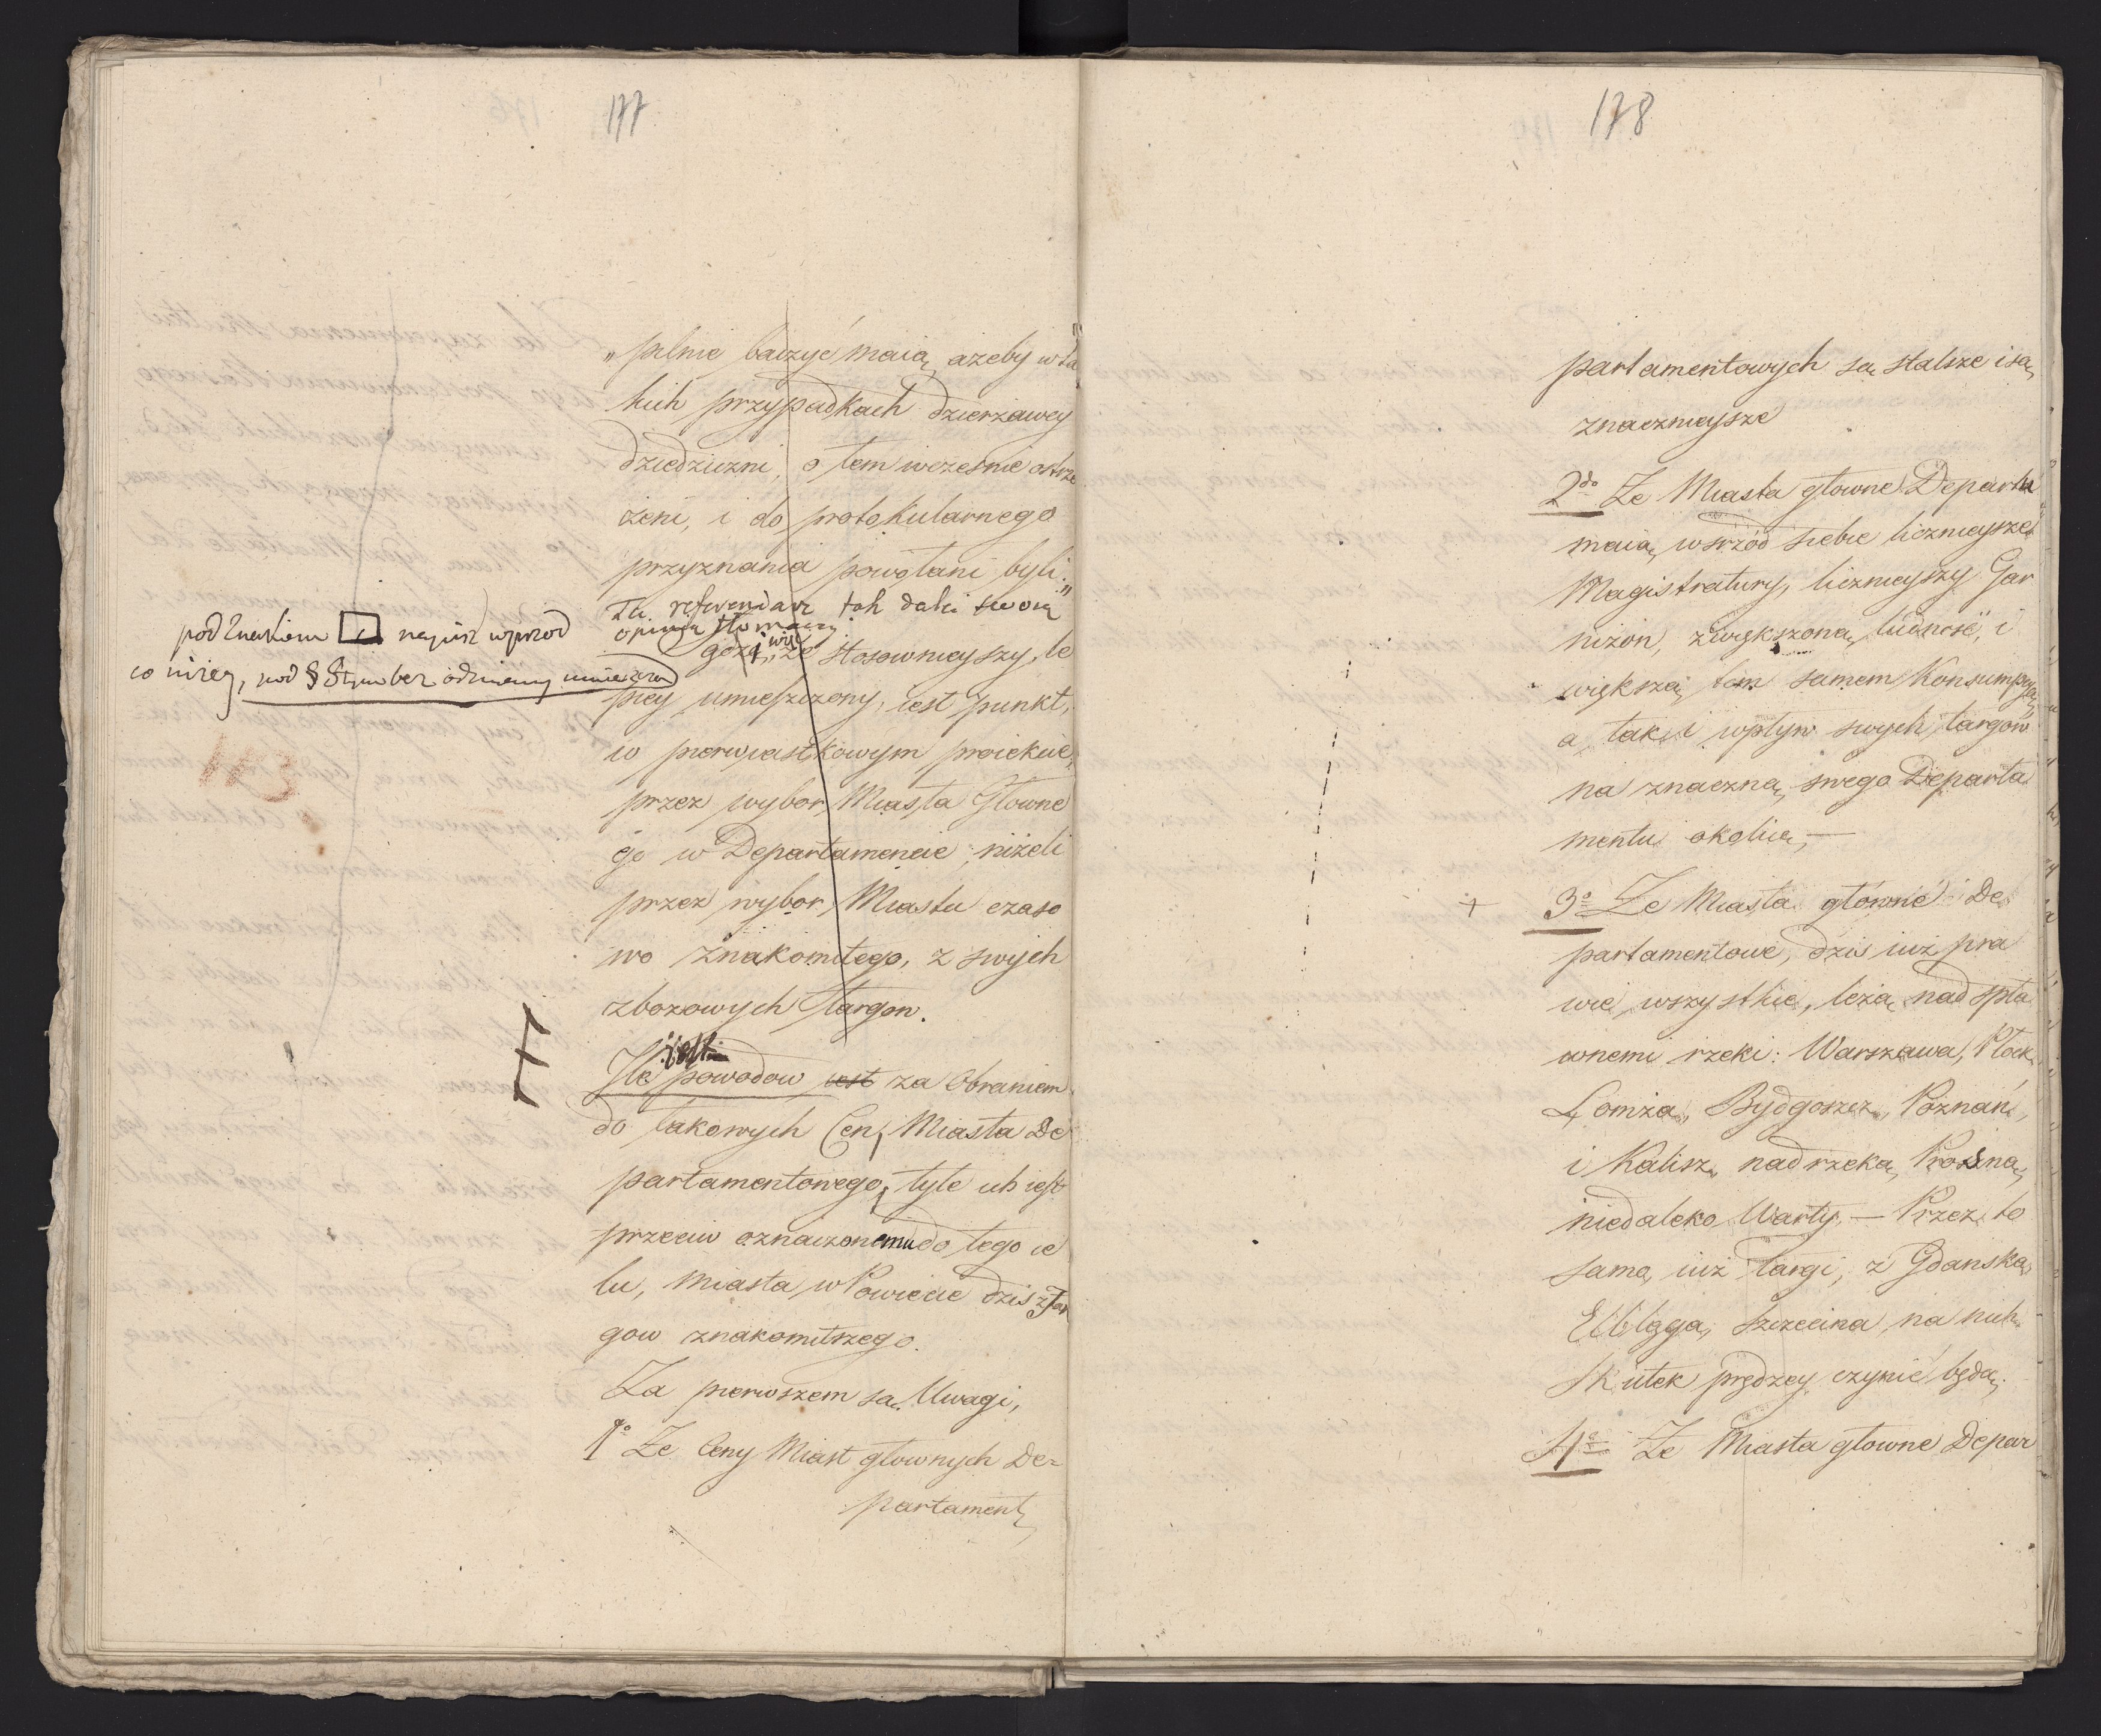 177
„pilnie baczyć maią, ażeby w ta
kich przypadkach dzierżawcy
dziedziczni, o tem wcześnie ostrze
żeni, i do protokularnego
przyznania powołani byli.”
Tu referendarz tak daléi swoią
opinią tłomaczy
pod znakiem napisz wprzod
co niżey, pod § 8tym bez odmiany umieszczono
że stosownieyszy, le
piey umieszczony, iest punkt,
w pierwiastkowym proiekcie,
przez wybor Miasta Głowne
go w Departamencie, niżeli
przez wybor Miasta czaso
wo znakomitego, z swych
zbożowych targow.
113
Ile iest powodow iest za obraniem
do takowych Cen, Miasta De
partamentowego, tyle ich iest
przeciw oznaczonemu do tego ce
lu, miasta w Powiecie dziś z Tar
gow znakomitszego.
Za pierwszem są Uwagi,
1o Że Ceny Miast głownych De=
partament
178
partamentowych są stalsze i są
znacznieysze
2do Że Miasta głowne Departa
maią, wsrzód siebie licznieysze
Magistratury, licznieyszy Gar
nizon, zwiększoną ludność, i
większą tem samem Konsumpcyą,
a taki wpływ swych targów
na znaczną swego Departa
mentu okolicę,—
+ 3o Że Miasta główne De
partamentowe, dziś iuż pra
wie wszystkie, leżą nad spła
wnemi rzeki: Warszawa, Płock,
Łomża, Bydgoszcz, Poznań,
i Kalisz, nad rzeką Prosną,
niedaleko Warty.— Przez to
samo, iuż targi, z Gdanska,
Elbląga, Szczecina, na nich
skutek prędzey czynić będą.
4o Że Miasta głowne Depar